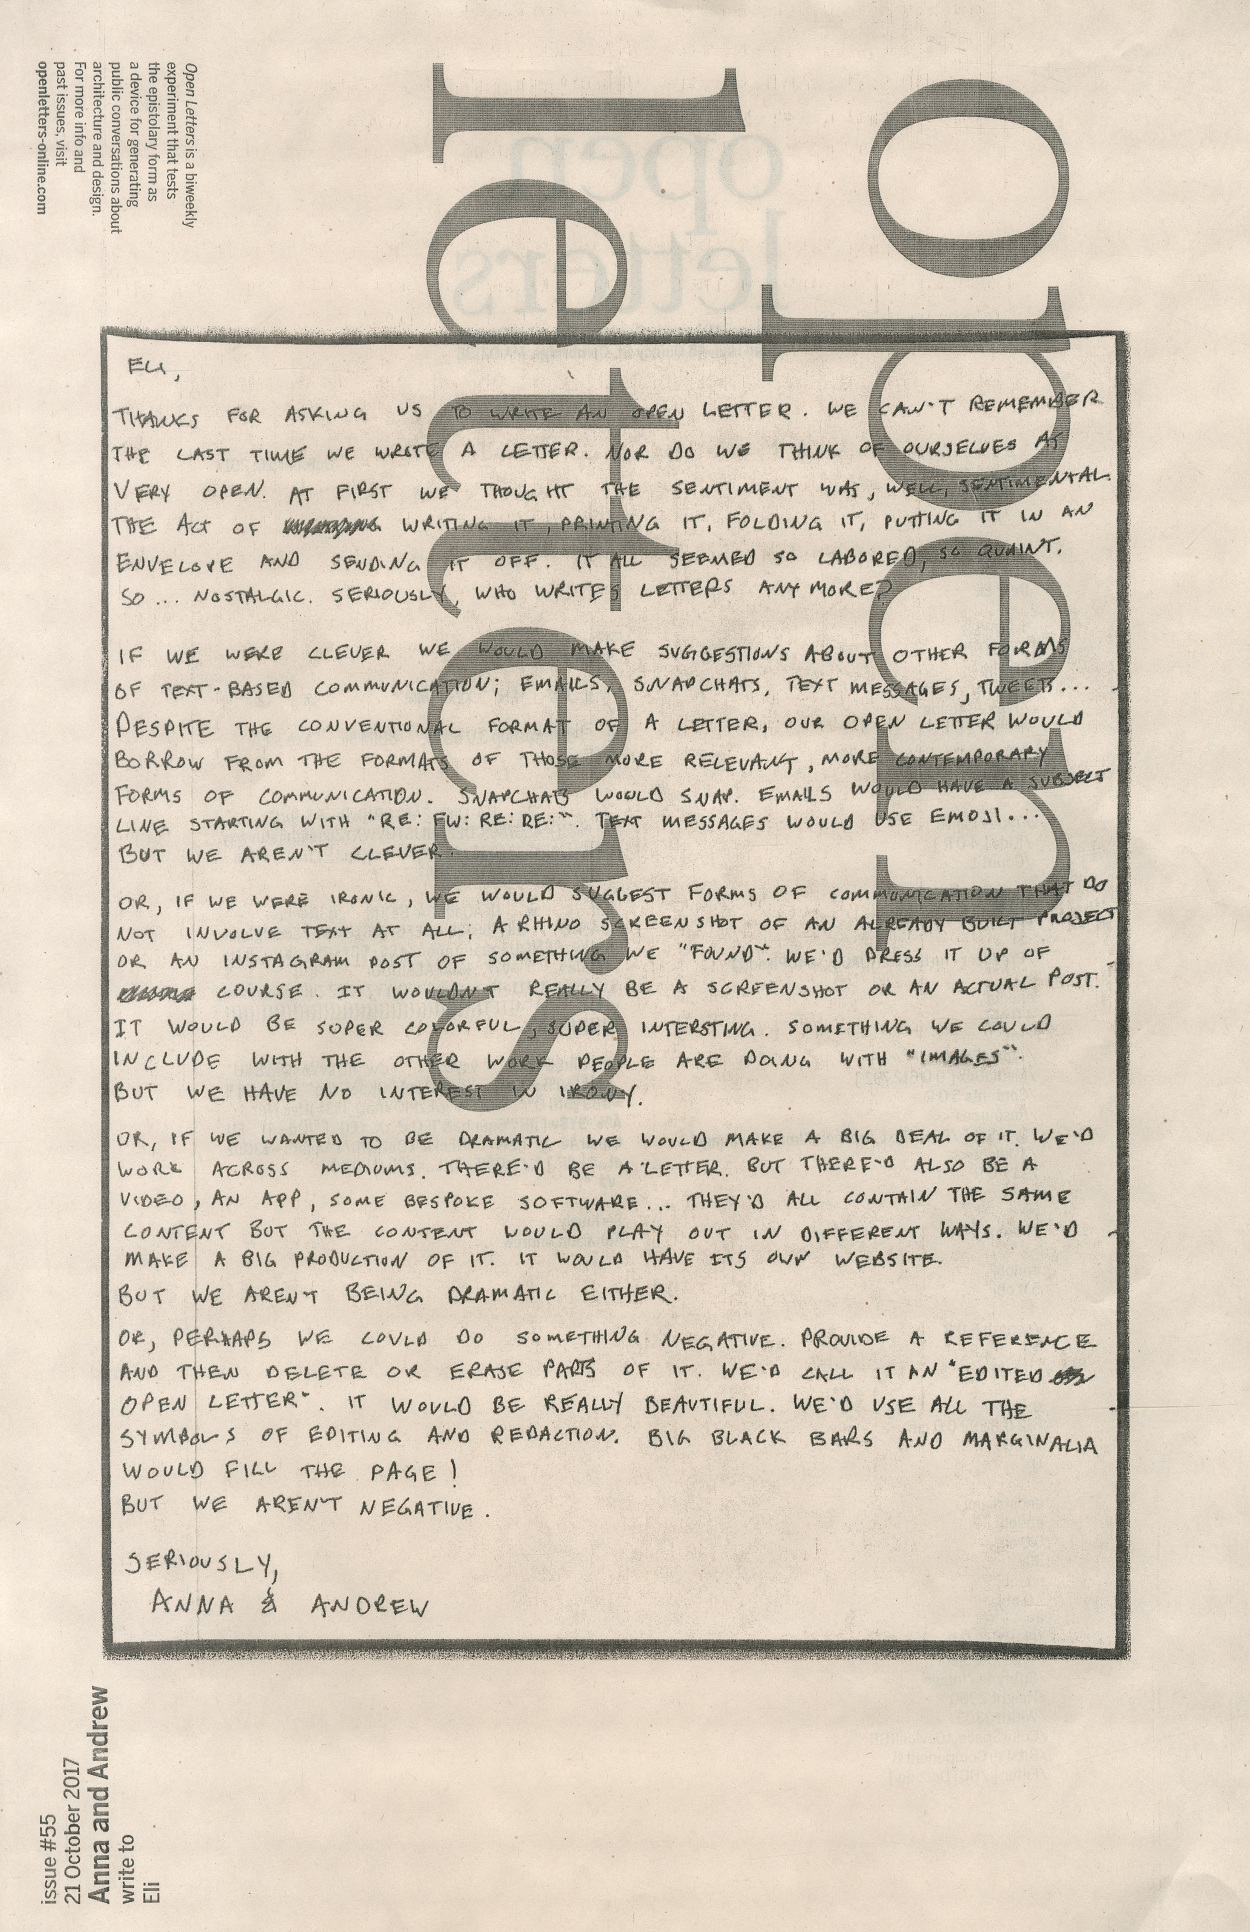 Open Letters is a biweekly
experiment that tests
the epistolary form as
a device for generating
public conversations about
architecture and design.
For more info and
past issues, visit
openletters-online.com
open
letters
open
letters
ELI,
THANKS FOR ASKING US TO WRITE AN OPEN LETTER. WE CAN'T REMEMBER
THE LAST TIME WE WROTE A LETTER. NOR DO WE THINK OF OURSELVES AS
VERY OPEN. AT FIRST WE THOUGHT THE SENTIMENT WAS, WELL, SENTIMENTAL
THE ACT OF WRITING IT, PRINTING IT, FOLDING IT, PUTTING IT IN AN
ENVELOPE AND SENDING IT OFF. IT ALL SEEMED SO LABORED, SO QUAINT.
SO... NOSTALGIC. SERIOUSLY, WHO WRITES LETTERS ANYMORE?
IF WE WERE CLEVER WE WOULD MAKE SUGGESTIONS ABOUT OTHER FORMS
OF TEXT-BASED COMMUNICATION; EMAILS, SNAPCHATS, TEXT MESSAGES, TWEETS...
DESPITE THE CONVENTIONAL FORMAT OF A LETTER, OUR OPEN LETTER WOULD
BORROW FROM THE FORMATS OF THOSE MORE RELEVANT, MORE CONTEMPORARY
FORMS OF COMMUNICATION. SNAPCHATS WOULD SNAP. EMAILS WOULD HAVE A SUBJECT
LINE STARTING WITH "RE: FW: RE: RE:". TEXT MESSAGES WOULD USE EMOJI...
BUT WE AREN'T CLEVER.
OR, IF WE WERE IRONIC, WE WOULD SUGGEST FORMS OF COMMUNICATION THAT DO
NOT INVOLVE TEXT AT ALL; A RHINO SCREENSHOT OF AN ALREADY BUILT PROJECT
OR AN INSTAGRAM POST OF SOMETHING WE "FOUND". WE'D DRESS IT UP OF
COURSE. IT WOULDN'T REALLY BE A SCREENSHOT OR AN ACTUAL POST.
IT WOULD BE SUPER COLORFUL, SUPER INTERSTING. SOMETHING WE COULD
INCLUDE WITH THE OTHER WORK PEOPLE ARE DOING WITH "IMAGES".
BUT WE HAVE NO INTEREST IN IRONY.
OR, IF WE WANTED TO BE DRAMATIC WE WOULD MAKE A BIG DEAL OF IT. WE'D
WORK ACROSS MEDIUMS. THERE'D BE A LETTER. BUT THERE'D ALSO BE A
VIDEO, AN APP, SOME BESPOKE SOFTWARE... THEY'D ALL CONTAIN THE SAME
CONTENT BUT THE CONTENT WOULD PLAY OUT IN DIFFERENT WAYS. WE'D
MAKE A BIG PRODUCTION OF IT. IT WOULD HAVE ITS OWN WEBSITE.
BUT WE AREN'T BEING DRAMATIC EITHER.
OR, PERHAPS WE COULD DO SOMETHING NEGATIVE. PROVIDE A REFERENCE
AND THEN DELETE OR ERASE PARTS OF IT. WE'D CALL IT AN "EDITED
OPEN LETTER". IT WOULD BE REALLY BEAUTIFUL. WE'D USE ALL THE
SYMBOLS OF EDITING AND REDACTION. BIG BLACK BARS AND MARGINALIA
WOULD FILL THE PAGE!
BUT WE AREN'T NEGATIVE.
SERIOUSLY,
ANNA & ANDREW
issue #55
21 October 2017
Anna and Andrew
write to
Eli